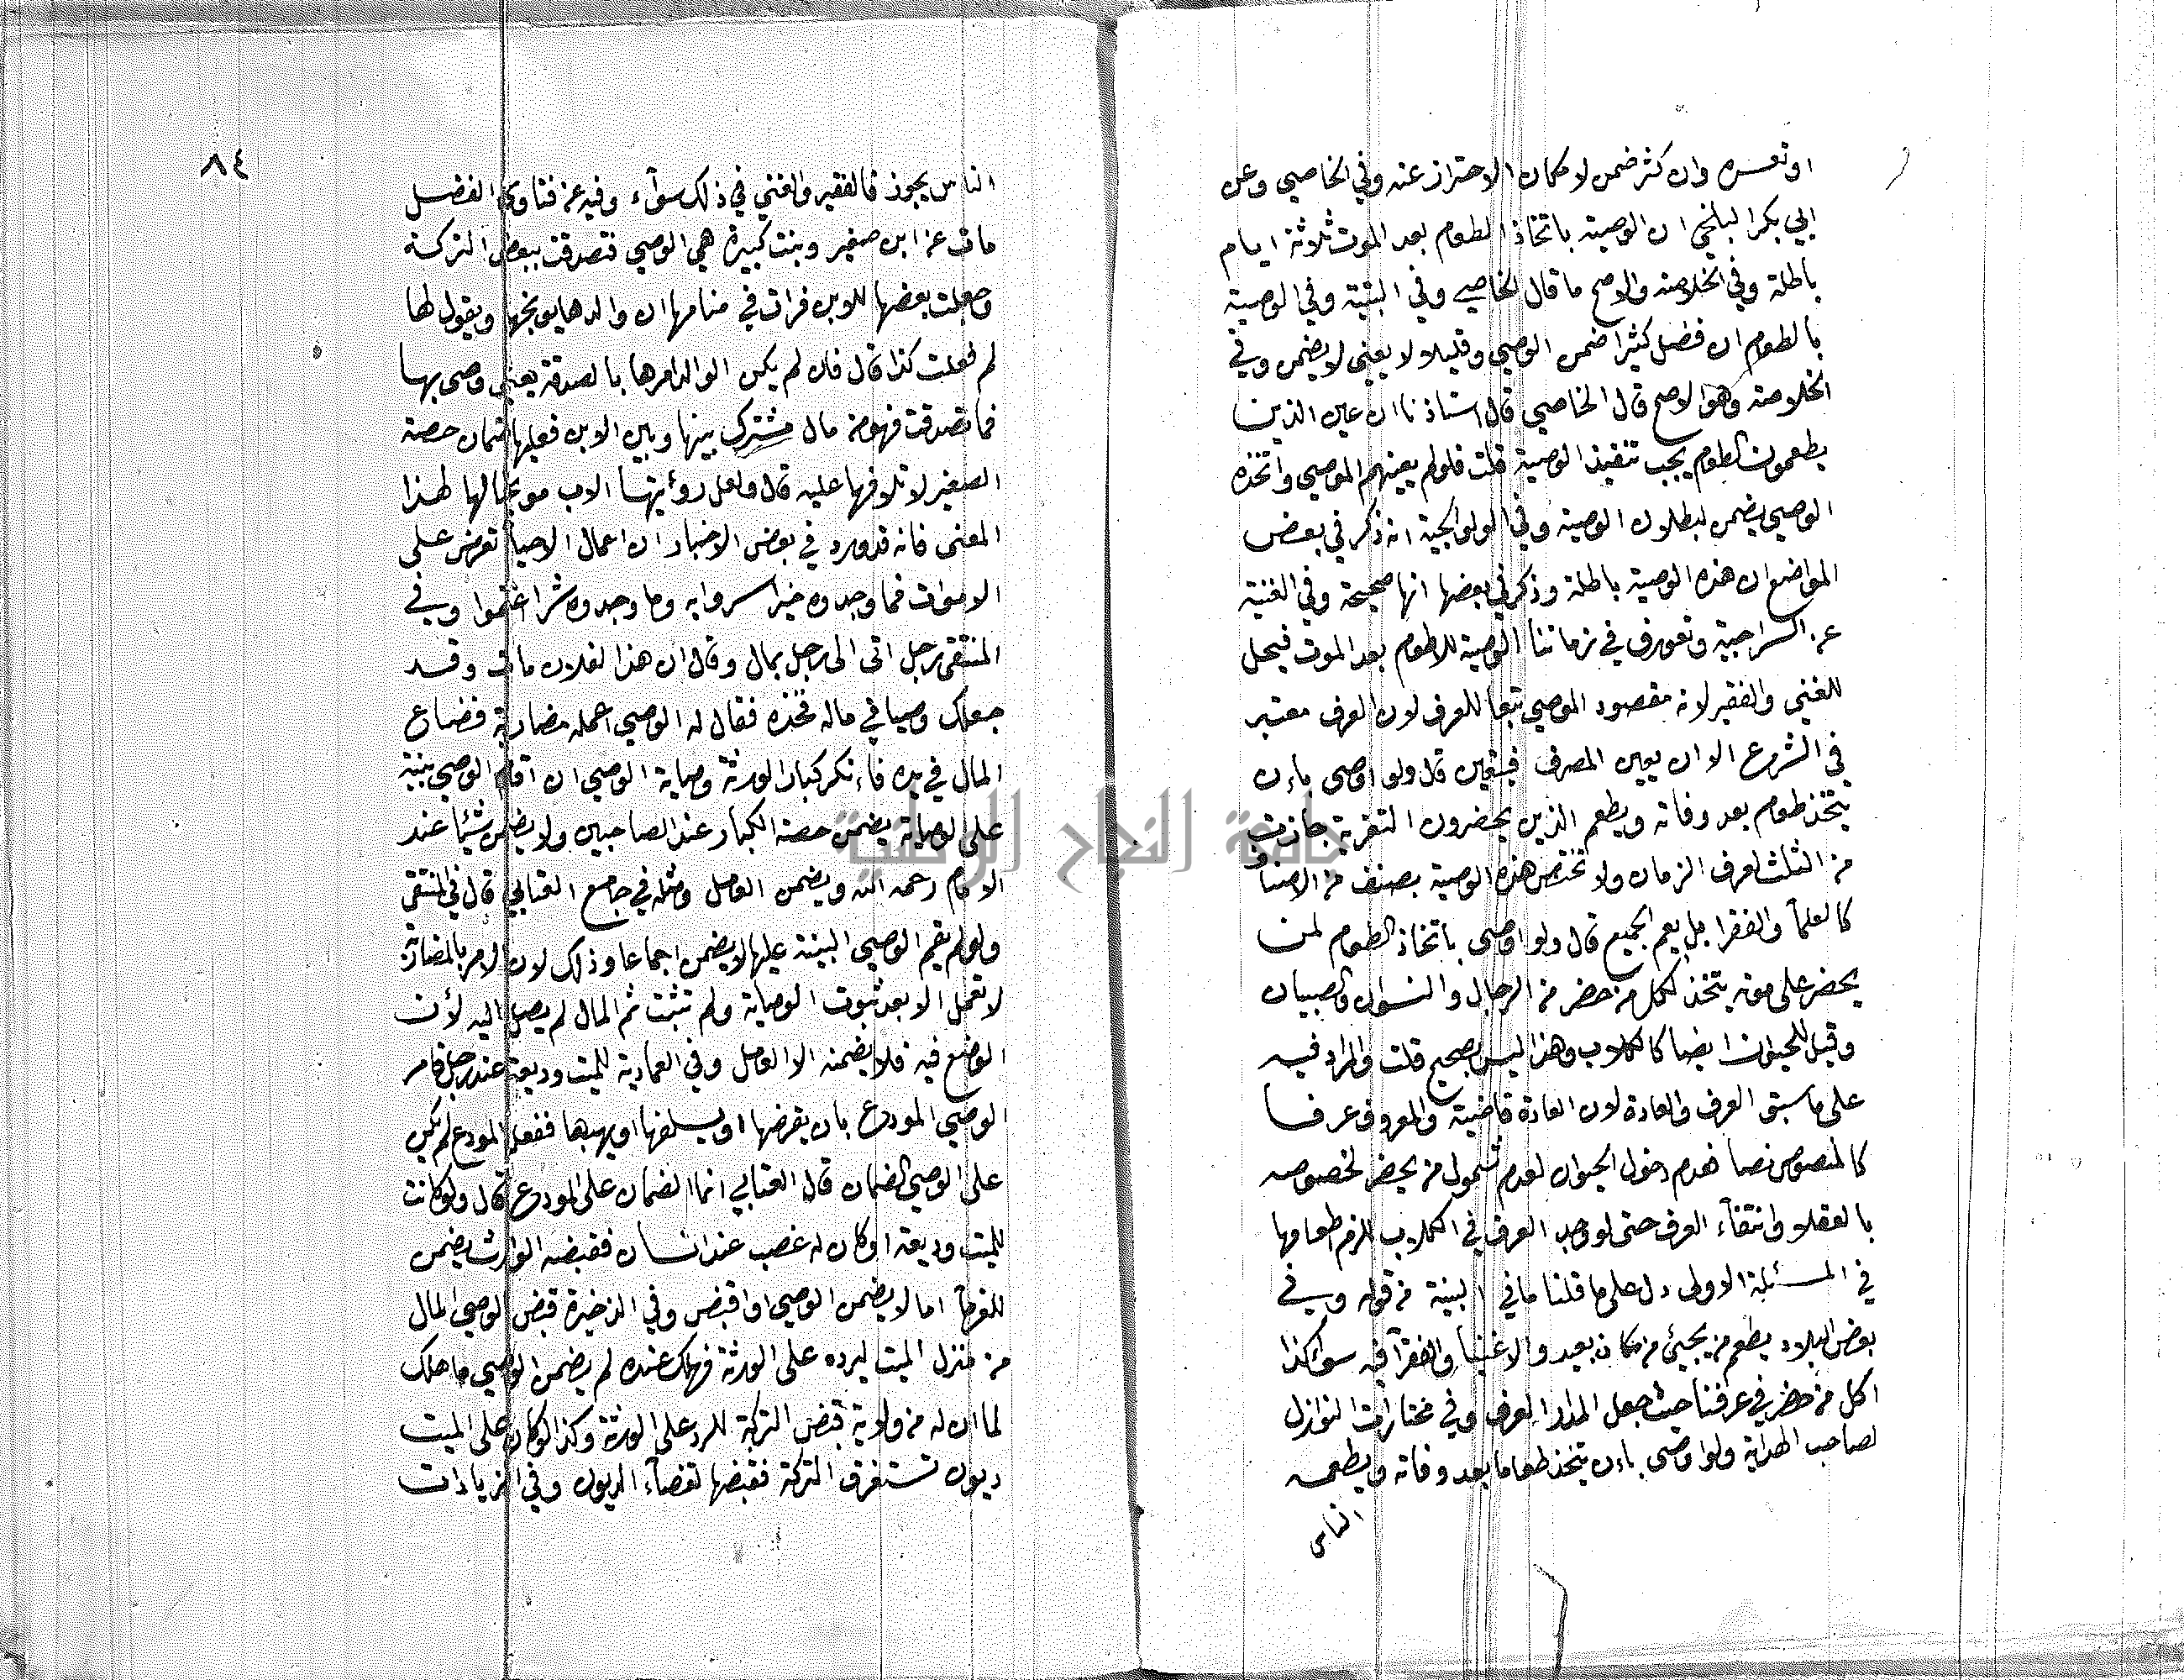 او تعسره وان كثر ضمن لامكان الاحتراز عنه وفي الخاصي وعن
ابي بكر البلخي ان الوصية باتخاذ الطعام بعد الموت ثلاثة ايام
باطلة وفي الخلاصة والاصح ما قال الخاصي وفي وفي الوصية
بالطعام ان فضل كثيرا ضمن الوصي وقليلا لا يعني لا يضمن وفي
الخلاصة وهو الاصح قال الخاصي قال استاذنا ان عين الذين
يطعمون الطعام يجب تنفيذ الوصية قلت فلو لم يعينهم الموصي واتخذه
الوصي يضمن لبطلان الوصية وفي الولوالجية انه ذكر في بعض
المواضع ان هذه الوصية باطلة وذكر في بعضها انها صحيحة وفي الغنية
عن السراجية وتعورف في زماننا الوصية للاطعام بعد الموت فيحل
للغني والفقير لانه مقصود الموصي تبعا للعرف لان العرف معتبر
في الشرع الا ان يعين المصرف فيتعين قال ولو اوصى باءن
يتخذ طعام بعد وفاته ويطعم الذين يحضرون التعزية جازت
من الثلث لعرف الزمان ولا تختص هذه الوصية بصنف من الاصناف
كالعلمآ والفقرا بل يعم الجميع قال ولو اوصى باتخاذ الطعام لمن
يحضر على موته يتخذ لكل من حضر من الرجال والنسوان والصبيان
وقيل للحيوان ايضا كالكلاب وهذا ليس بصحيح قلت والمراد فيه
على ما سبق العرف والعادة لان العادة قاضية والمعروف عرفا
كالمنصوص نصا فعدم دخول الحيوان لعدم شمول من يحضر لخصوصه
بالعقلا وانتفآء العرف حتى لو وجد العرف في الكلاب لزم اطعامها
في المسئلة الاولى دل على ما قلنا ما في من قوله وفي
بعض البلاد يطعم من يجيئ من مكان بعيد والاغنيا والفقرآ فيه سوآ كذا
اكل من حضر في عرفنا حيث جعل المدار العرف وفي مختارات النوازل
لصاحب الهداية ولو اوصى باءن يتخذ طعاما بعد وفاته ويطعمه
الناس
٨٤
الناس يجوز فالفقير والغني في ذلك سوآء وفيه عن فتاوى الفضل
مات عن ابن صغير وبنت كبيرة هي الوصي فتصدقت ببعض التركة
وجعلت بعضها للابن فرات في منامها ان والدها يوبخها ويقول لها
لم فعلت كذا قال فان لم يكن الوالد امرها بالصدقة يعني وصى بها
فما تصدقت فهو من مال مشترك بينها وبين الابن فعليها ضمان حصة
الصغير لاتلافها عليه قال ولعل رؤيتها الاب موبخا لها لهذا
المعنى فانه قد ورد في بعض الاخبار ان اعمال الاحيا تعرض على
الاموات فما وجدوه خيرا سروا به وما وجدوه شرا اغتموا وفي
المنتقى رجل اتى الى رجل بمال وقال ان هذا لفلان مات وقد
جعلك وصيا في ماله فخذه فقال له الوصي اعمله مضاربة فضاع
المال في يده فاءنكر كبار الورثة وصاية الوصي ان اقام الوصي بينة
على الوصاية يضمن حصة الكبار عند الصاحبين ولا يضمن شيئا عند
الامام رحمه الله ويضمن العامل ومثله في جامع العتابي قال في المنتقى
ولو لم يقم الوصي البينة عليها لا يضمن اجماعا وذلك لان الامر بالمضاربة
لا تعمل الا بعد ثبوت الوصاية ولم تثبت ثم المال لم يصل اليه لأن
الوضع فيه فلا يضمنه الا العامل وفي العمادية للميت وديعة عند رجل فامر
الوصي المودع بان يقرضها او يسلفها او يهبها ففعل المودع لم يكن
على الوصي الضمان قال العتابي انما الضمان على المودع قال ولو كانت
للميت وديعة او كان له غصب عند انسان فقبضه الوارث يضمن
للغرمآ اما لا يضمن الوصي اذا قبض وفي الذخيرة قبض الوصي المال
من منزل الميت ليرده على الورثة فهلك عنده لم يضمن الوصي ما هلك
لما ان له من ولاية قبض التركة للرد على الورثة وكذا لو كان على الميت
ديون تستغرق التركة فقبضها لقضآء الديون وفي الزيادات
جامعة النجاح الوطنية